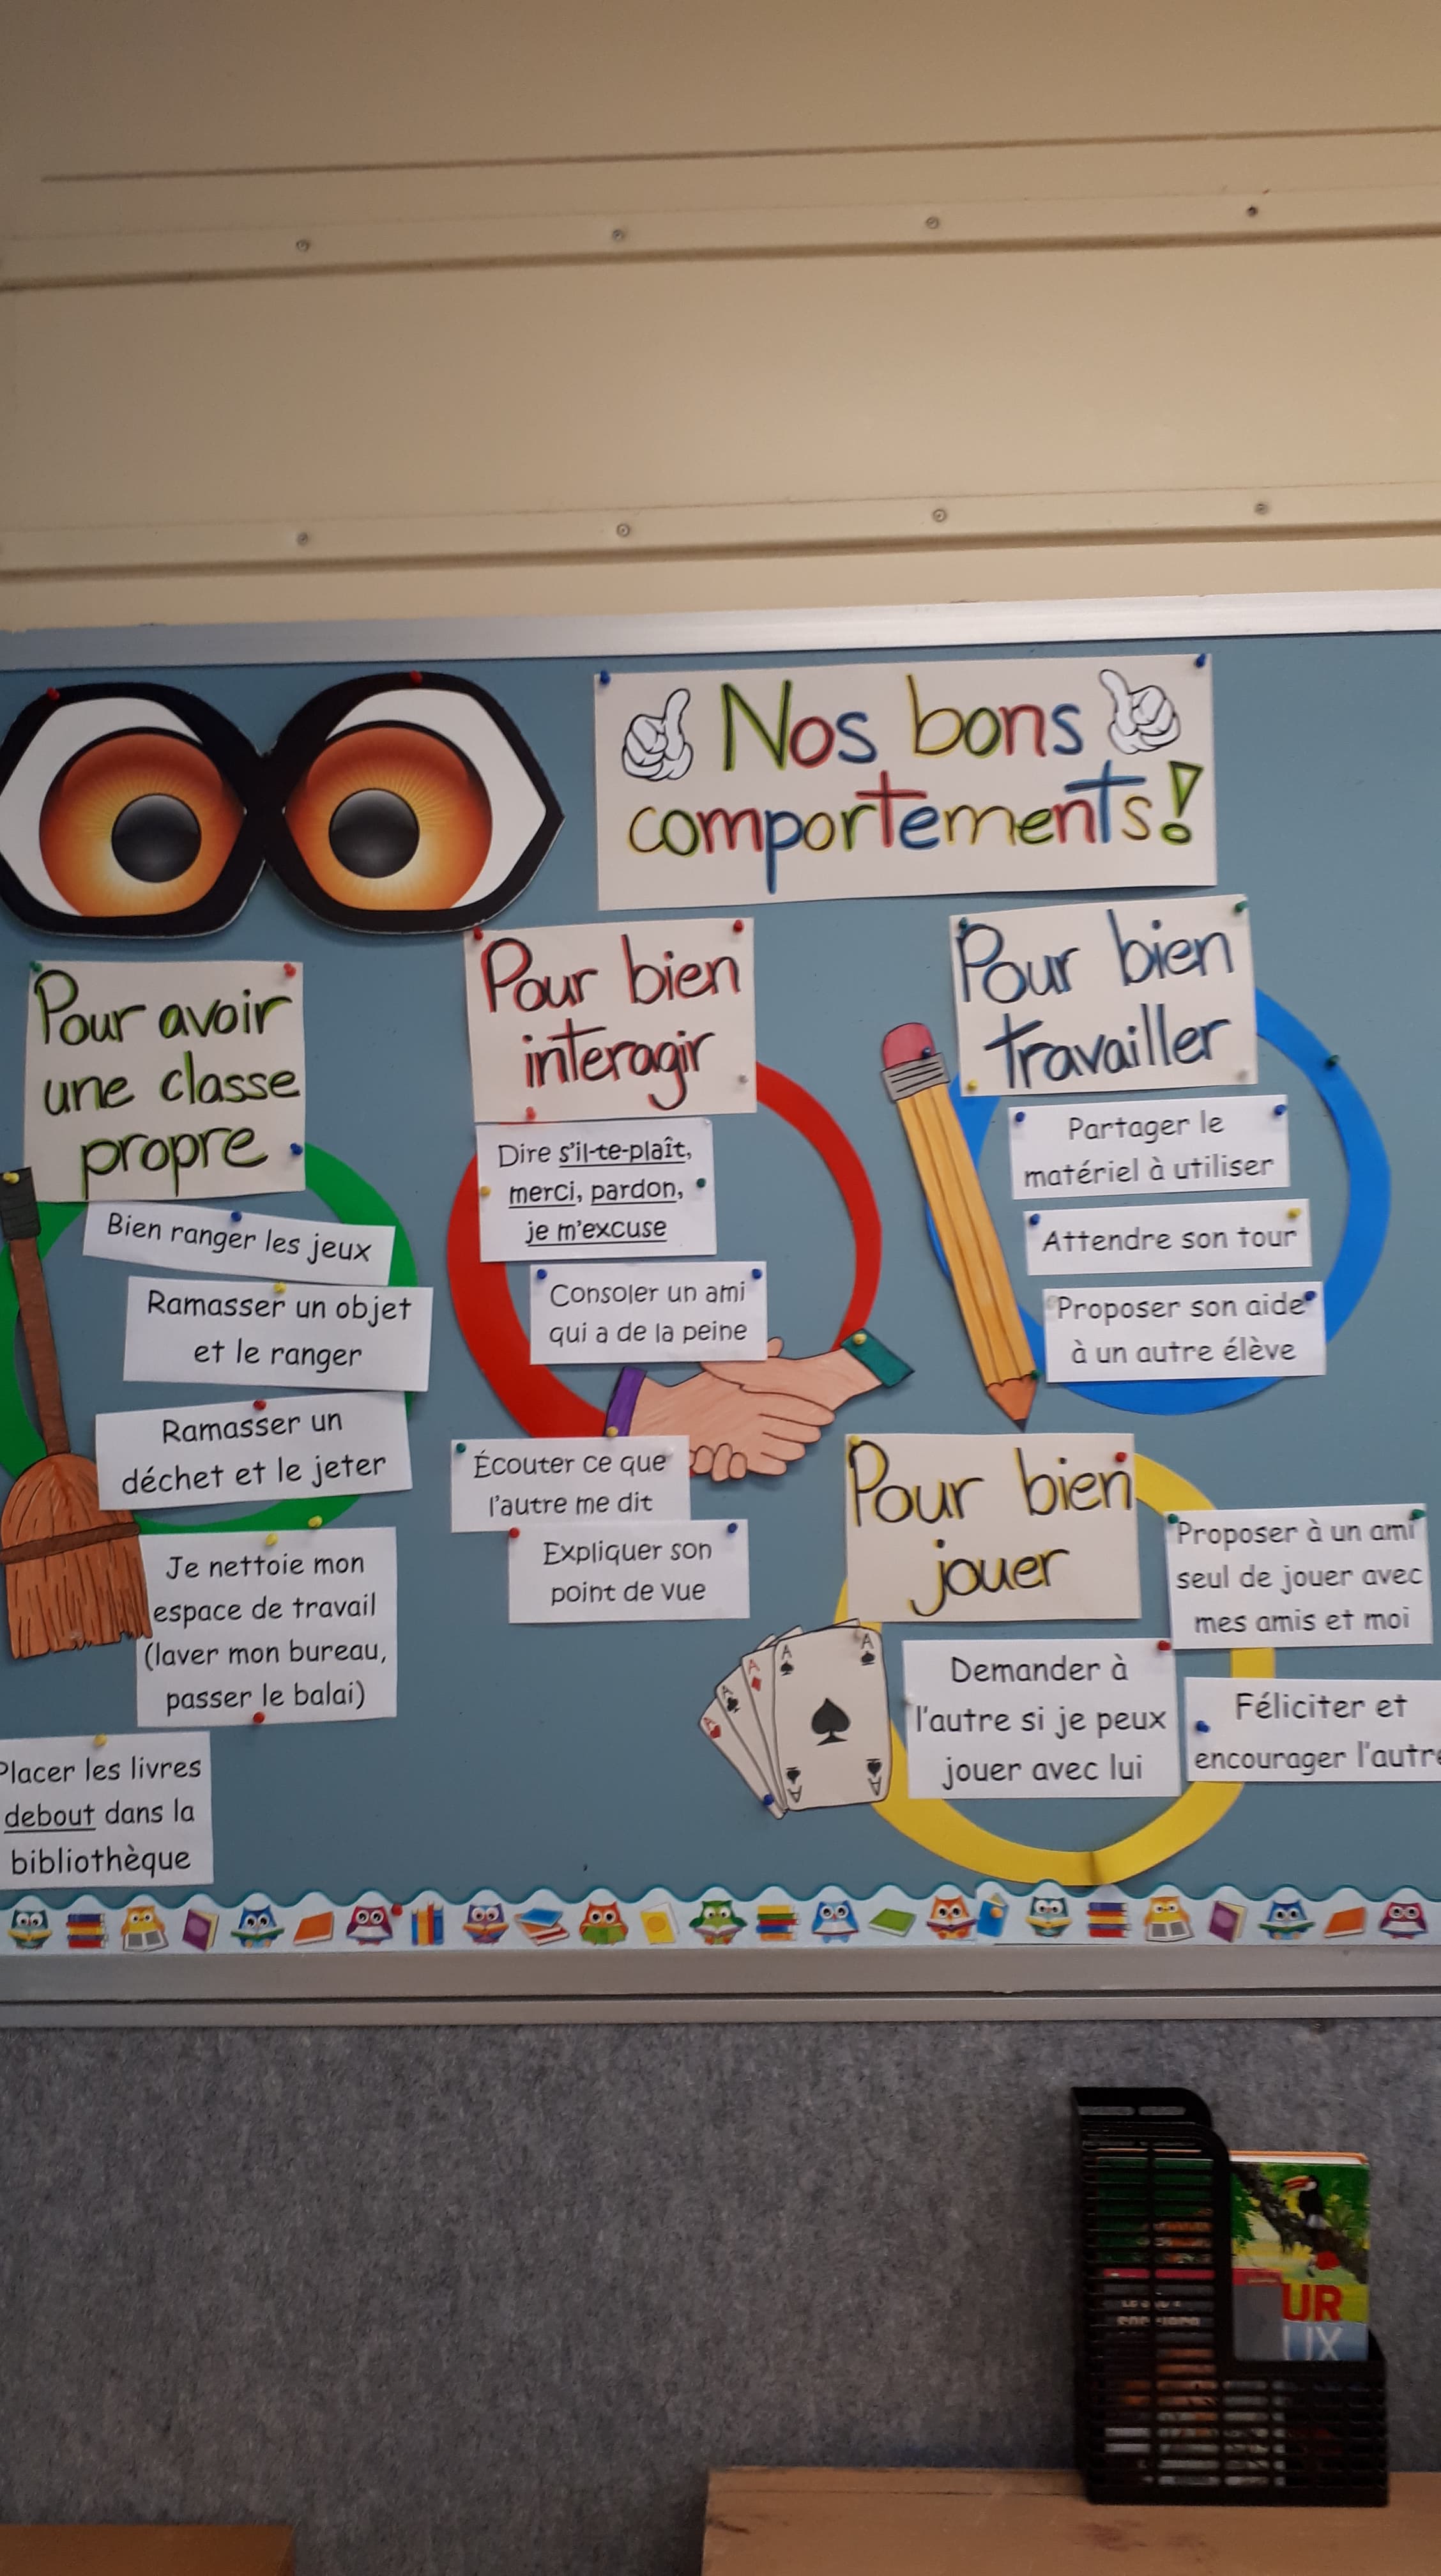 Nos bons
comportements!
Pour avoir
une classe
propre
Bien ranger les jeux
Ramasser un objet
et le ranger
Ramasser un
déchet et le jeter
Je nettoie mon
espace de travail
(laver mon bureau,
passer le balai)
Placer les livres
debout dans la
bibliothèque
Pour bien
interagir
Dire s'il-te-plaît,
merci, pardon,
je m'excuse
Consoler un ami
qui a de la peine
Écouter ce que
l'autre me dit
Expliquer son
point de vue
Pour bien
travailler
Partager le
matériel à utiliser
Attendre son tour
Proposer son aide
à un autre élève
Pour bien
jouer
Proposer à un ami
seul de jouer avec
mes amis et moi
Demander à
l'autre si je peux
jouer avec lui
Féliciter et
encourager l'autre
A
A
A
A
A
A
A
UR
UX